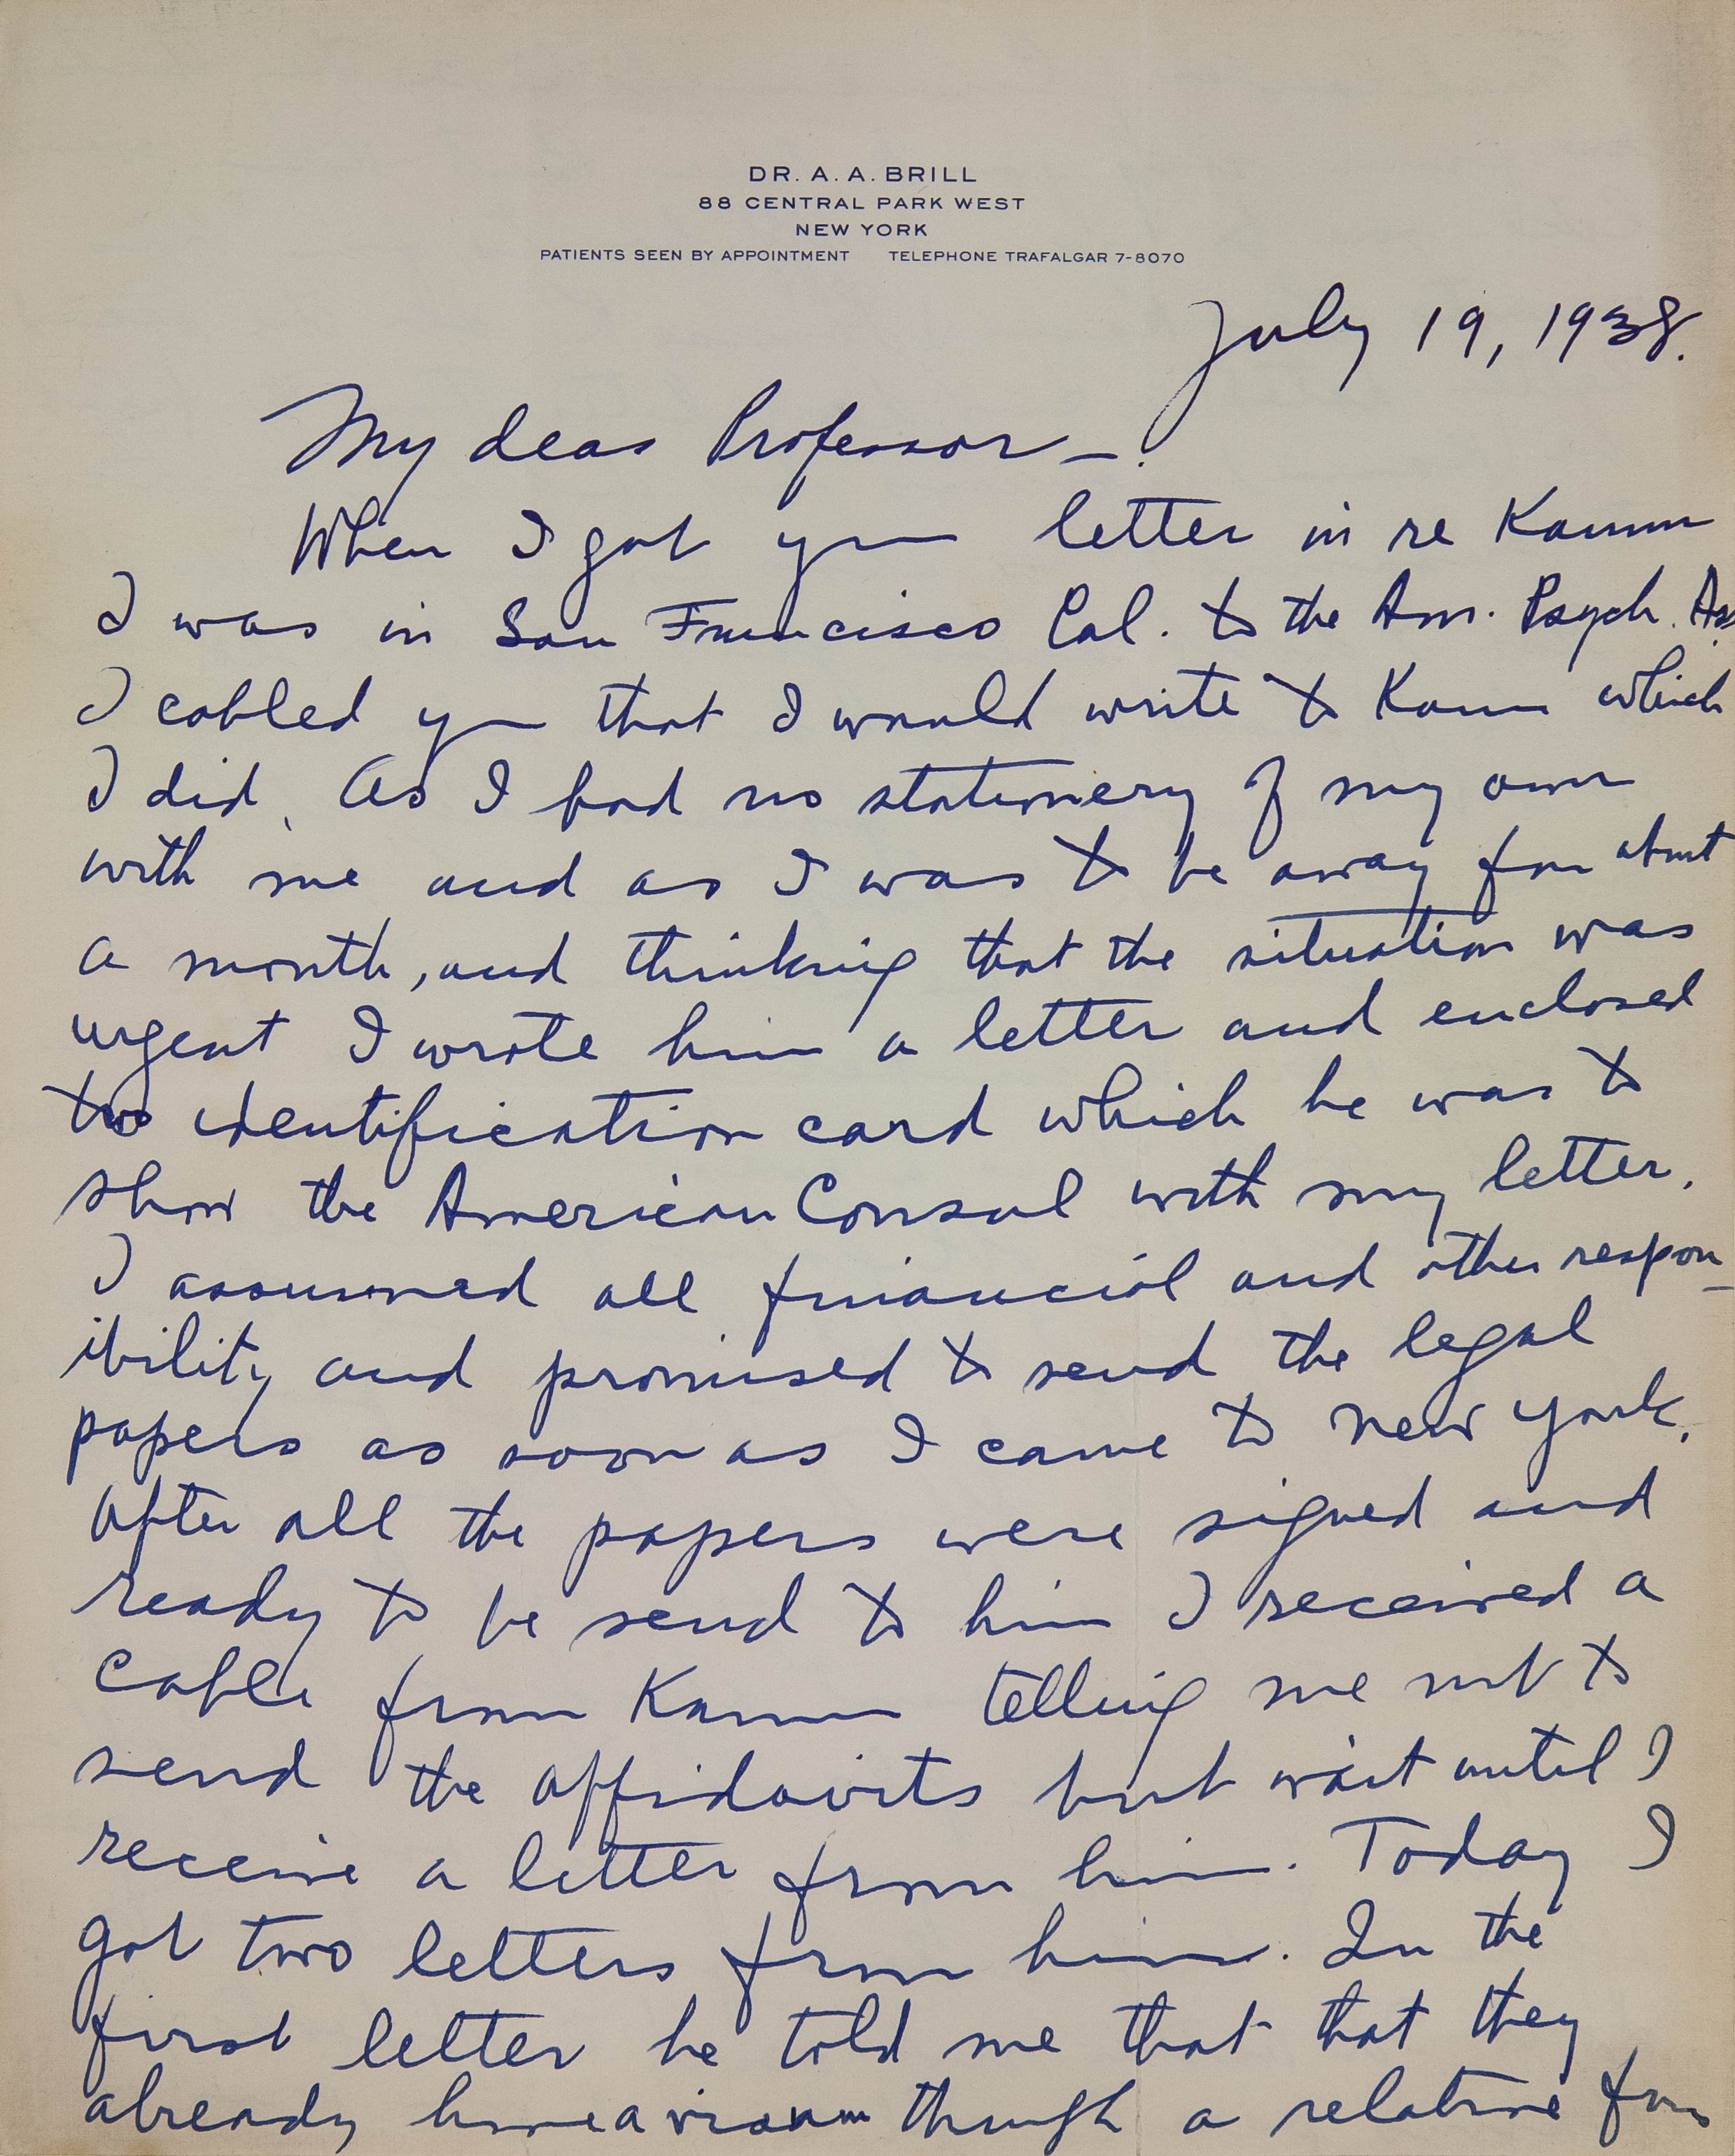 DR. A. A. BRILL
88 CENTRAL PARK WEST
NEW YORK
PATIENTS SEEN BY APPOINTMENT TELEPHONE TRAFALGAR 7-8070
July 19, 1938.
My dear Professor –.
When I got your letter in re Kamm
I was in San Francisco Cal. to the Am. Psych. Ass
I cabled you that I would write to Kamm which
I did. As I had no stationery of my own
with me and as I was to be away for about
a month, and thinking that the situation was
urgent I wrote him a letter and enclosed
two identification card which he was to
show the American Consul with my letter.
I assumed all financial and other respon-
ibility and promised to send the legal
papers as soon as I came to New York.
After all the papers were signed and
ready to be send to him I received a
cable from Kamm telling me not to
send the affidavits but wait until I
receive a letter from him. Today I
got two letters from him. In the
first letter he told me that that they
already have a through a relative from